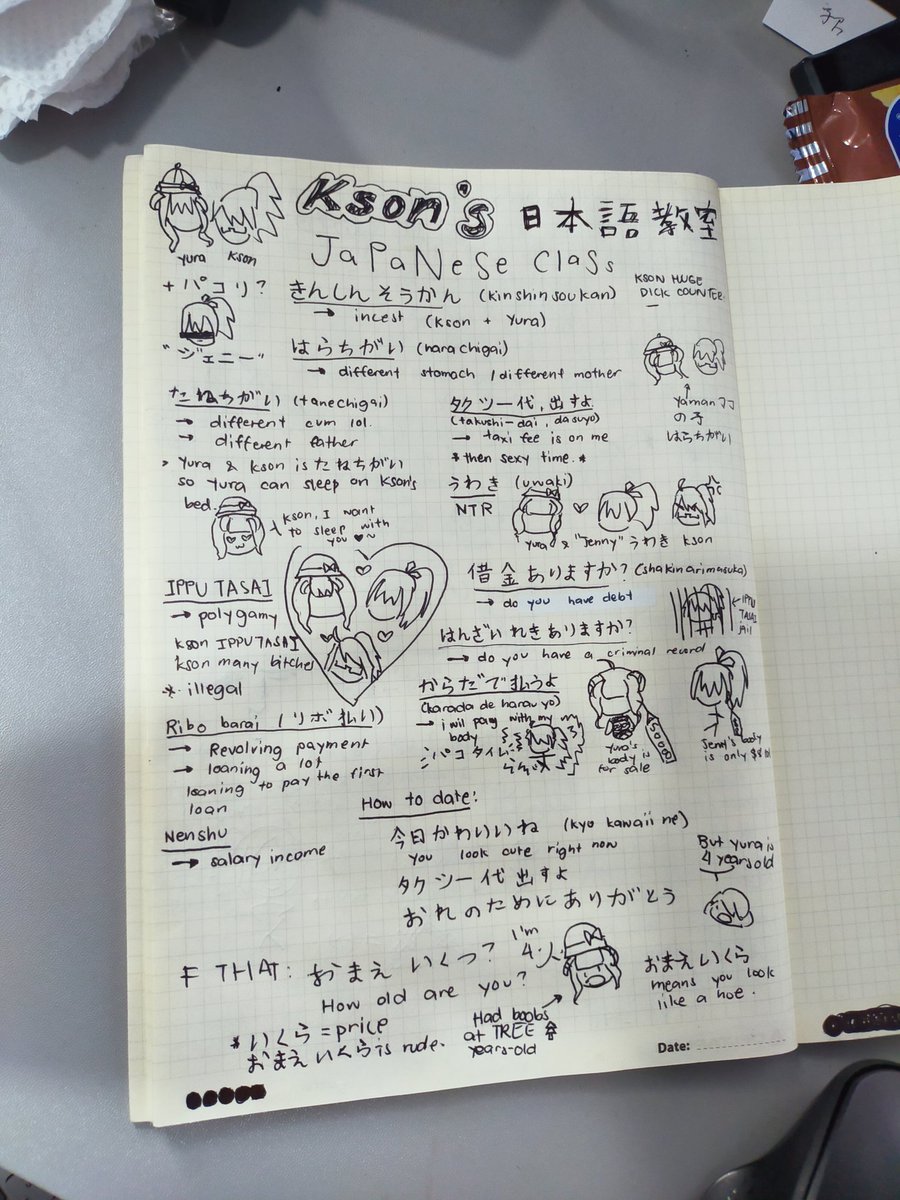 Kson's 日本語教室
Yura Kson
JaPaNeSe ClaSs
+ パコリ?
"ジェニー"
きんしんそうかん (kinshinsoukan)
→ incest (Kson + Yura)
KSON HUGE
DICK COUNTER
はらちがい (harachigai)
→ different stomach / different mother
Yaman ママ
の子
はらちがい
たねちがい (tanechigai)
→ different cum lol.
→ different father
> Yura & Kson is たねちがい
so Yura can sleep on Kson's
bed.
Kson, I want
to sleep with
you ♥~
タクツー代,出すよ
(takushi-dai, dasuyo)
→ taxi fee is on me
*then sexy time.*
うわき (uwaki)
NTR
Yura & "Jenny" うわき Kson
IPPU TASAI
→ polygamy
Kson IPPU TASAI
Kson many bitches
* illegal
借金ありますか? (shakinarimasuka)
→ do you have debt
← IPPU
TASAI
JAIL
はんざいれきありますか?
→ do you have a criminal record
からだで払うよ
(karada de harau yo)
→ i wil pay with my
body
パコタイム
Yura's
body is
for sale
5000
Jenny's body
is only $8 lol
Ribo barai / リボ払い)
→ Revolving payment
→ loaning a lot
loaning to pay the first
loan
Nenshu
→ salary income
How to date:
今日かわいいね (kyo kawaii ne)
you look cute right now
タクツー代出すよ
おれのためにありがとう
But Yura is
4 years old
F THAT: おまえ いくつ?
How old are you?
I'm
4
Had boobs
at TREE
years-old
おまえいくら
means you look
like a hoe.
* いくら = price
おまえいくら is rude.
Date: